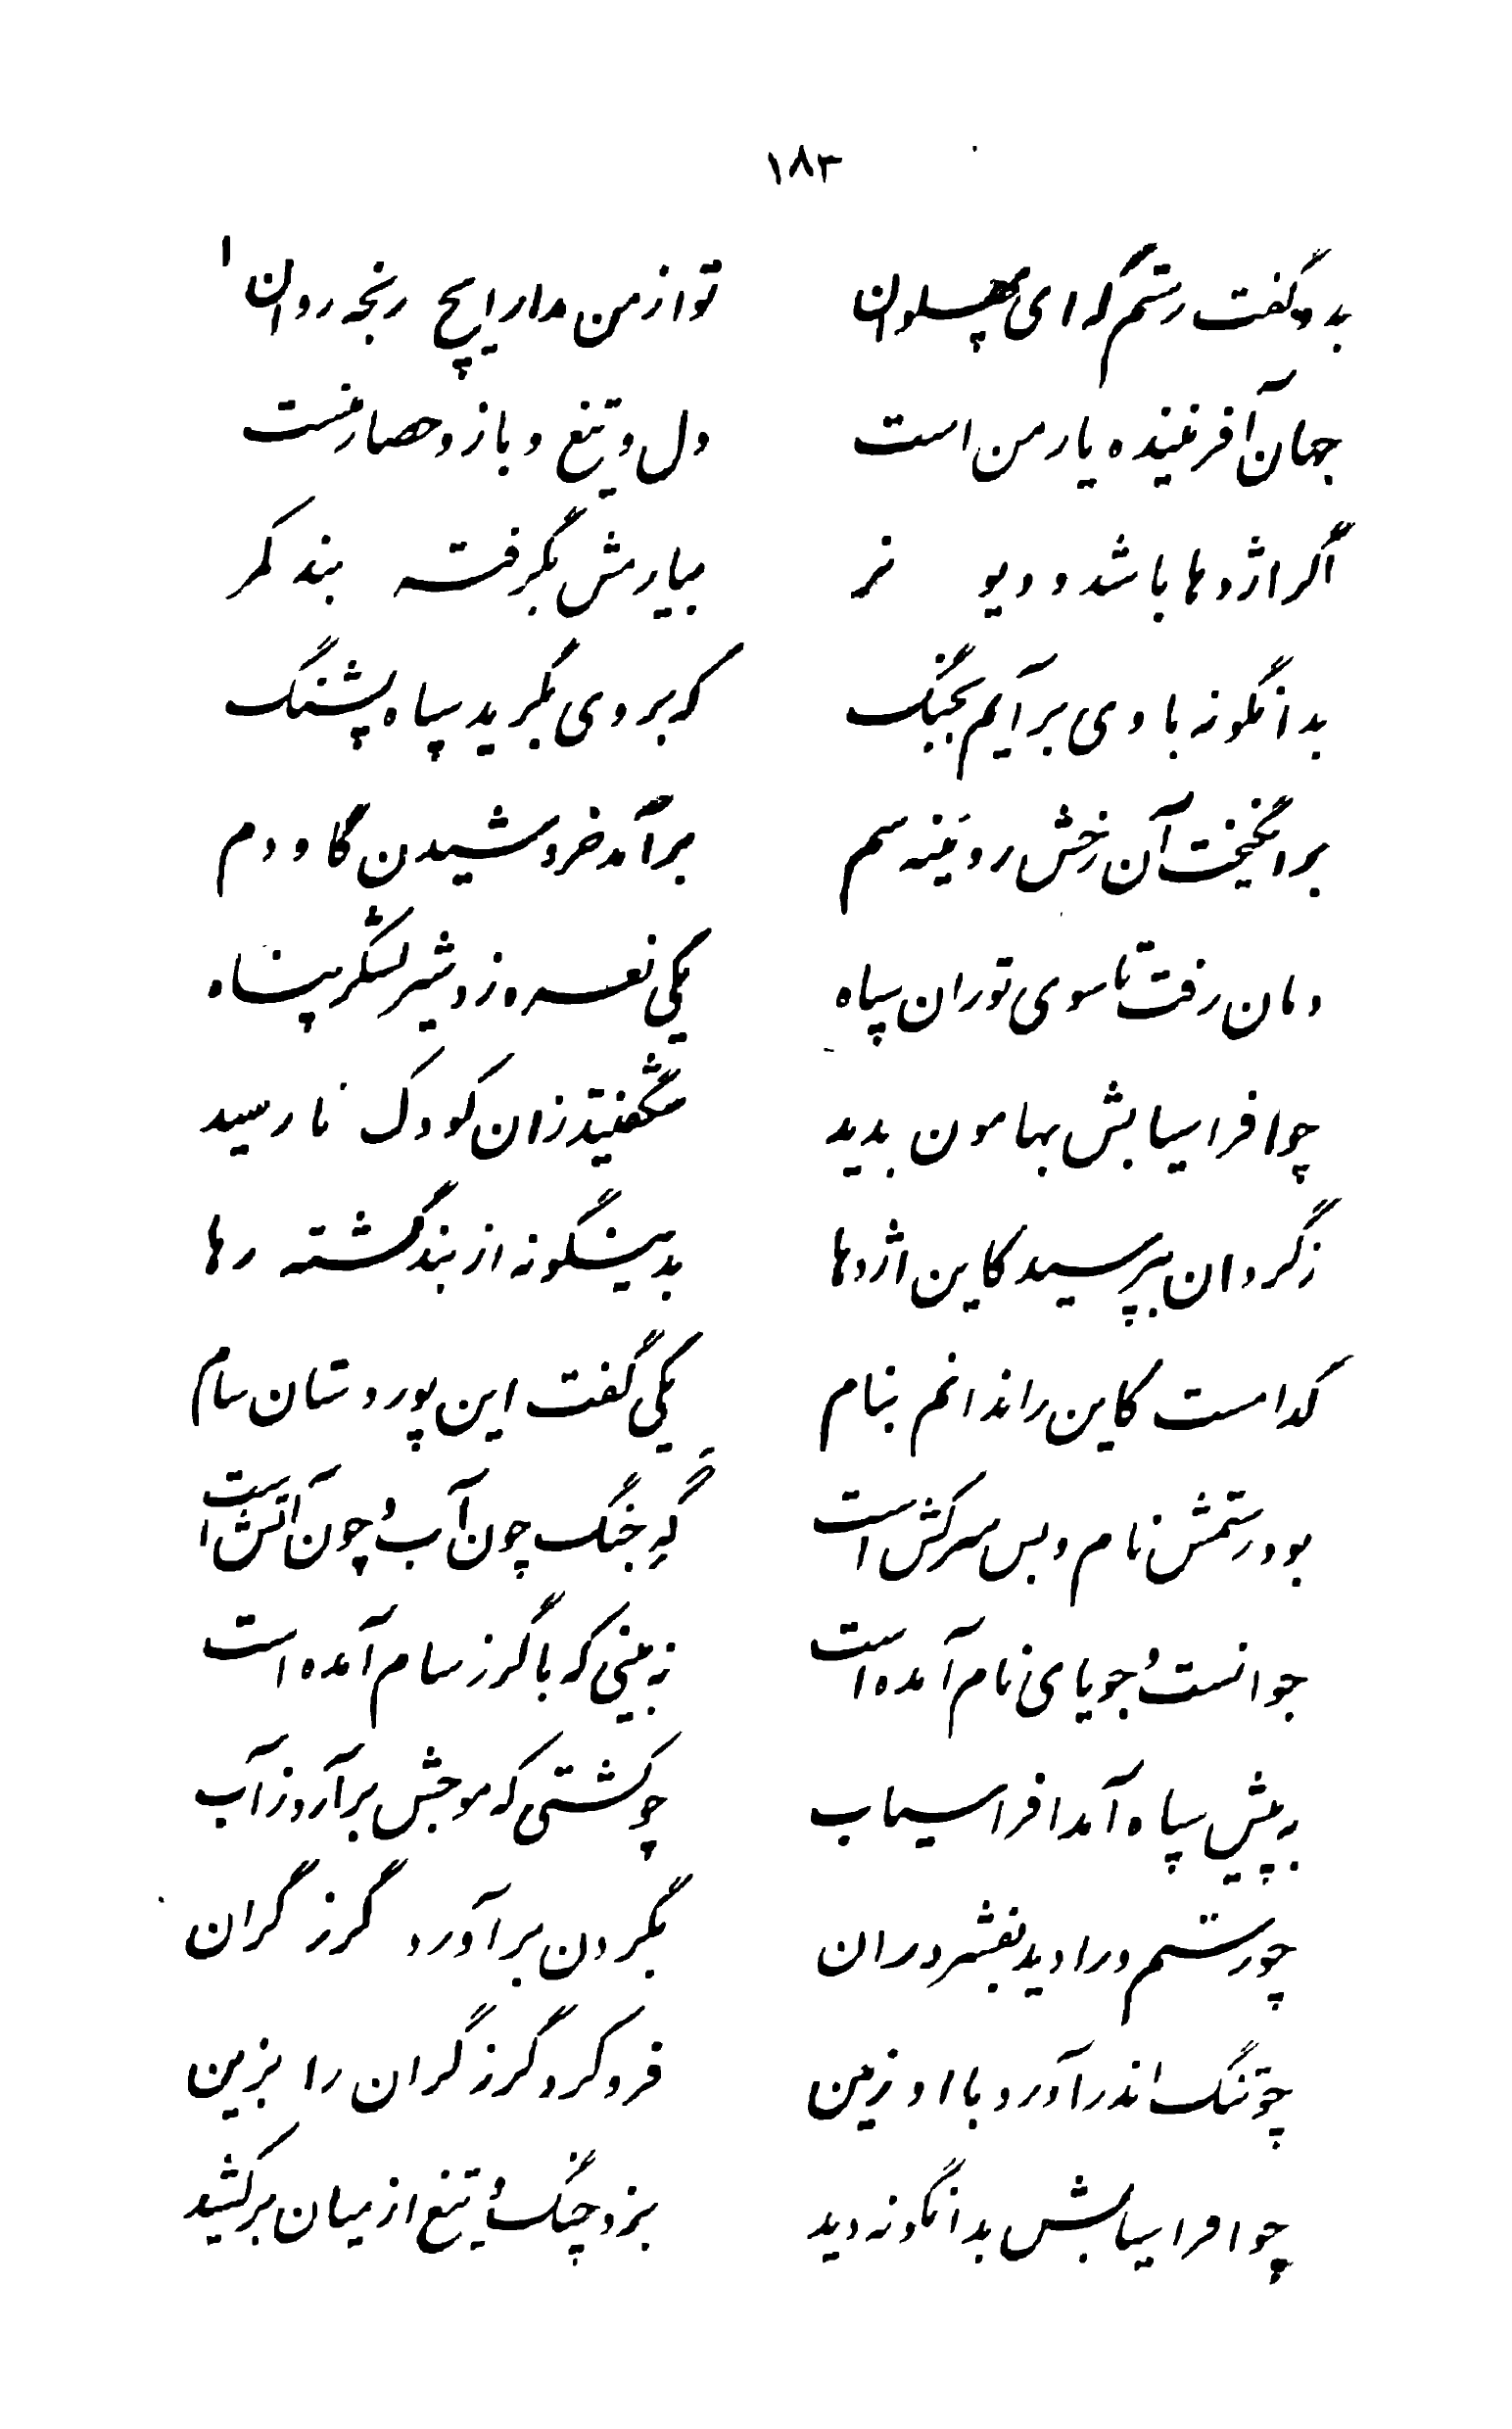 ۱۸۳
بدو گفت رستم که ای پهلوان تو از من مدار ایچ رنجه روان ۱
جهان آفریننده یار من است دل و تیغ و بازو حصار منست
اگر اژدها باشد و دیو نر بیارمش بگرفته بند کمر
بدانگونه با وی برآیم بجنگ که بر وی بگرید سپاه پشنگ
برانگیخت آن رخش روئینه سم برآمد خروشیدن گاو دم
دمان رفت تا سوی توران سپاه یکی نعره زد شیر لشکر پناه
چو افراسیابش بهامون بدید شگفتید زان کودک نارسید
ز گردان بپرسید کاین اژدها بدینگونه از بند گشته رها
کدامست کاین را ندانم بنام یکی گفت این پور دستان سام
بود رستمش نام و بس سرکش است گهِ جنگ چون آب و چون آتش است
جوانست و جویای نام آمده است نه بینی که با گرز سام آمده است
به پیش سپاه آمد افراسیاب چو کشتی که موجش برآرد ز آب
چو رستم ورا دید بفشرد ران بگردن برآورد گرز گران
چو تنگ اندر آورد با او زمین فرو کرد گرز گران را بزین
چو افراسیابش بدانگونه دید بزد چنگ و تیغ از میان برکشید